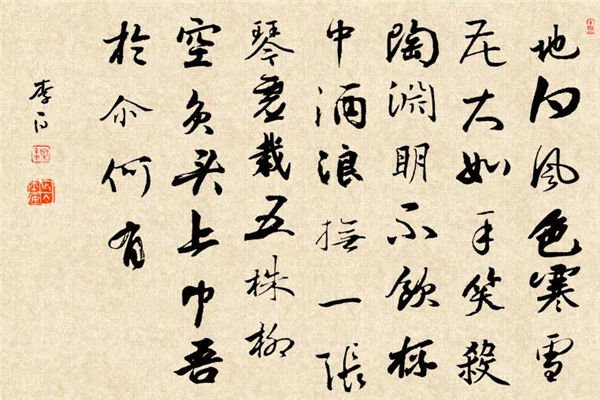 地白风色寒雪
花大如手笑殺
陶淵明不飲杯
中酒浪撫一張
琴虚栽五株柳
空负头上巾吾
於尔何有
李白